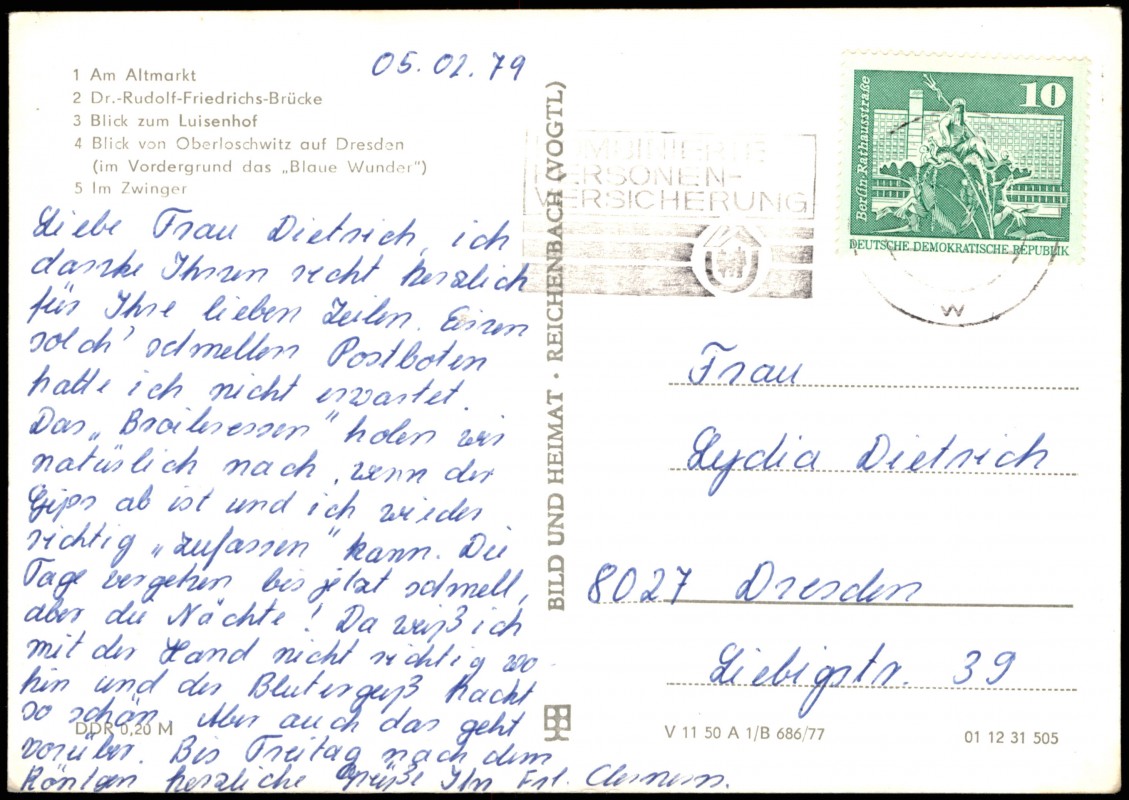 05.02.79
1 Am Altmarkt
2 Dr.-Rudolf-Friedrichs-Brücke
3 Blick zum Luisenhof
4 Blick von Oberloschwitz auf Dresden
(im Vordergrund das „Blaue Wunder")
5 Im Zwinger
Liebe Frau Dietrich, ich
danke Ihnen recht herzlich
für Ihre lieben Zeilen. Einen
solch' schnellen Postboten
hatte ich nicht erwartet.
Das „Broileressen" holen wir
natürlich nach, wenn der
Gips ab ist und ich wieder
richtig „zufassen" kann. Die
Tage vergehen bis jetzt schnell,
aber die Nächte! Da weiß ich
mit der Hand nicht richtig wo
hin und der Bluterguß hackt
so schön. Aber auch das geht
vorüber. Bis Freitag nach dem
Röntgen herzliche Grüße Ihr Frl. Clemens.
DDR 0,20 M
BILD UND HEIMAT · REICHENBACH (VOGTL)
KOMBINIERTE
PERSONEN-
VERSICHERUNG
10
Berlin-Rathausstraße
DEUTSCHE DEMOKRATISCHE REPUBLIK
w
Frau
Lydia Dietrich
8027 Dresden
Liebigstr. 39
V 11 50 A 1/B 686/77
01 12 31 505